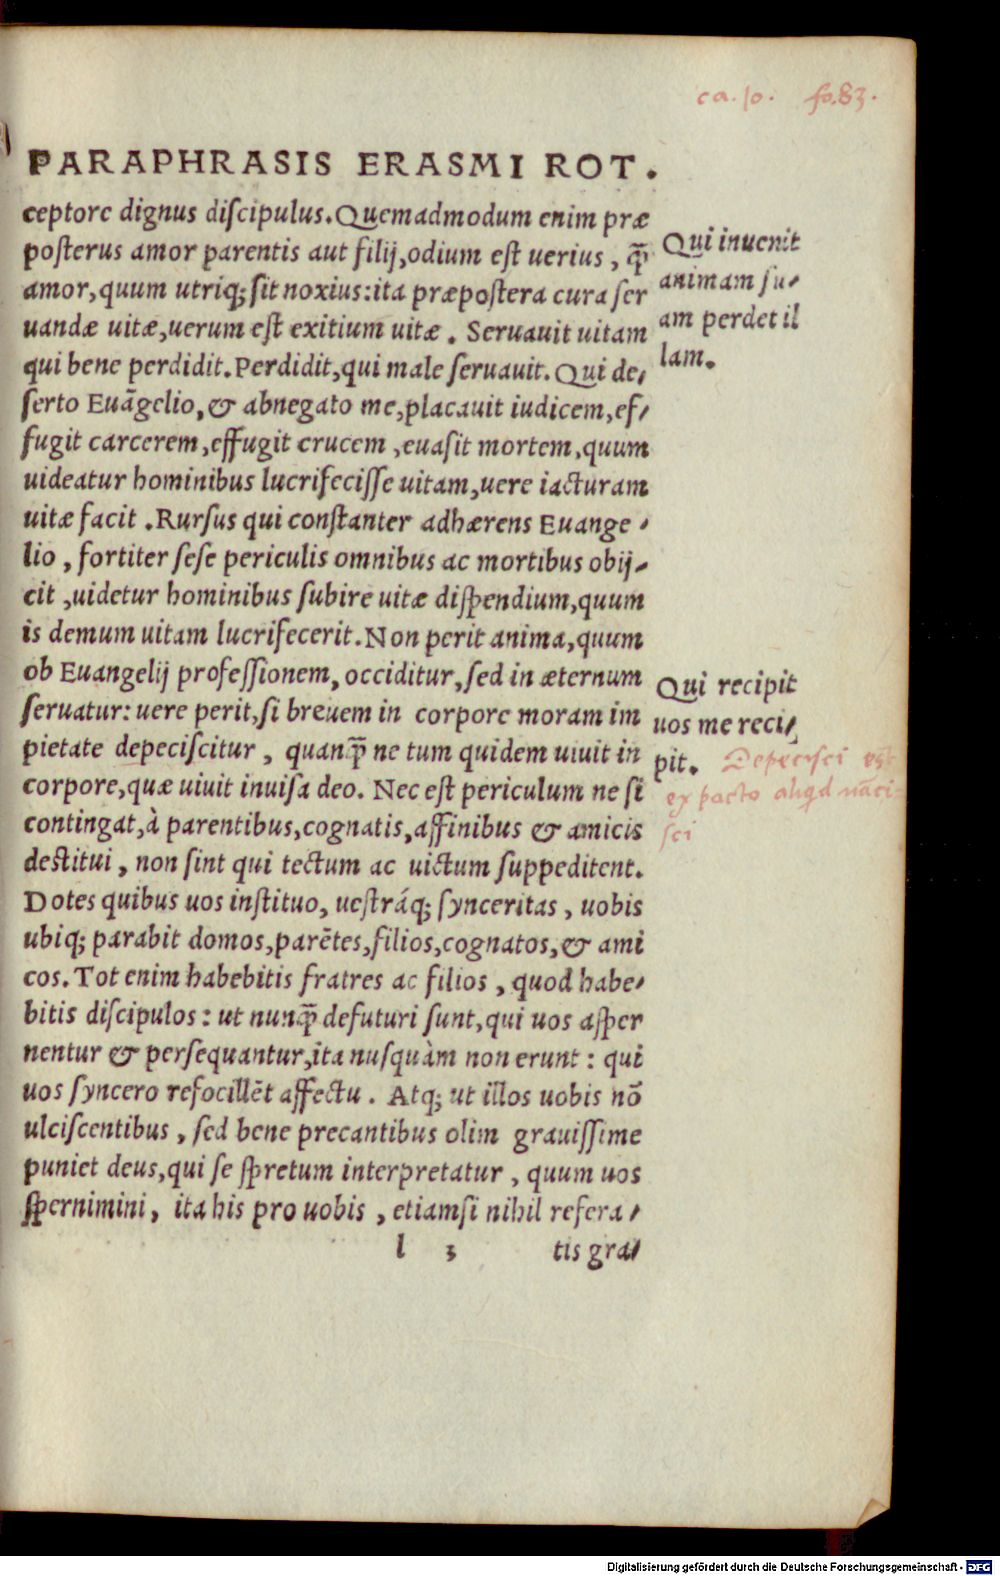 ca. 10. fo. 83.
PARAPHRASIS ERASMI ROT.
ceptore dignus discipulus. Quemadmodum enim præ
posterus amor parentis aut filij, odium est uerius, q̃
amor, quum utriq; sit noxius: ita præpostera cura ser
uandæ uitæ, uerum est exitium uitæ. Seruauit uitam
qui bene perdidit. Perdidit, qui male seruauit. Qui de-
serto Euãgelio, & abnegato me, placauit iudicem, ef-
fugit carcerem, effugit crucem, euasit mortem, quum
uideatur hominibus lucrifecisse uitam, uere iacturam
uitæ facit. Rursus qui constanter adhærens Euange-
lio, fortiter sese periculis omnibus ac mortibus obij-
cit, uidetur hominibus subire uitæ dispendium, quum
is demum uitam lucrifecerit. Non perit anima, quum
ob Euangelij professionem, occiditur, sed in æternum
seruatur: uere perit, si breuem in corpore moram im
pietate depeciscitur, quanq̃ ne tum quidem uiuit in
corpore, quæ uiuit inuisa deo. Nec est periculum ne si
contingat, à parentibus, cognatis, affinibus & amicis
destitui, non sint qui tectum ac uictum suppeditent.
Dotes quibus uos instituo, uestráq; synceritas, uobis
ubiq; parabit domos, parẽtes, filios, cognatos, & ami
cos. Tot enim habebitis fratres ac filios, quod habe-
bitis discipulos: ut nunq̃ defuturi sunt, qui uos asper
nentur & persequantur, ita nusquàm non erunt: qui
uos syncero refocillẽt affectu. Atq; ut illos uobis nõ
ulciscentibus, sed bene precantibus olim grauissime
puniet deus, qui se spretum interpretatur, quum uos
spernimini, ita his pro uobis, etiamsi nihil refera-
l 3 tis gra-
Qui inuenit
animam su-
am perdet il
lam.
Qui recipit
uos me reci-
pit.
Depecisci est
ex pacto aliqd nãci-
sci
Digitalisierung gefördert durch die Deutsche Forschungsgemeinschaft - DFG